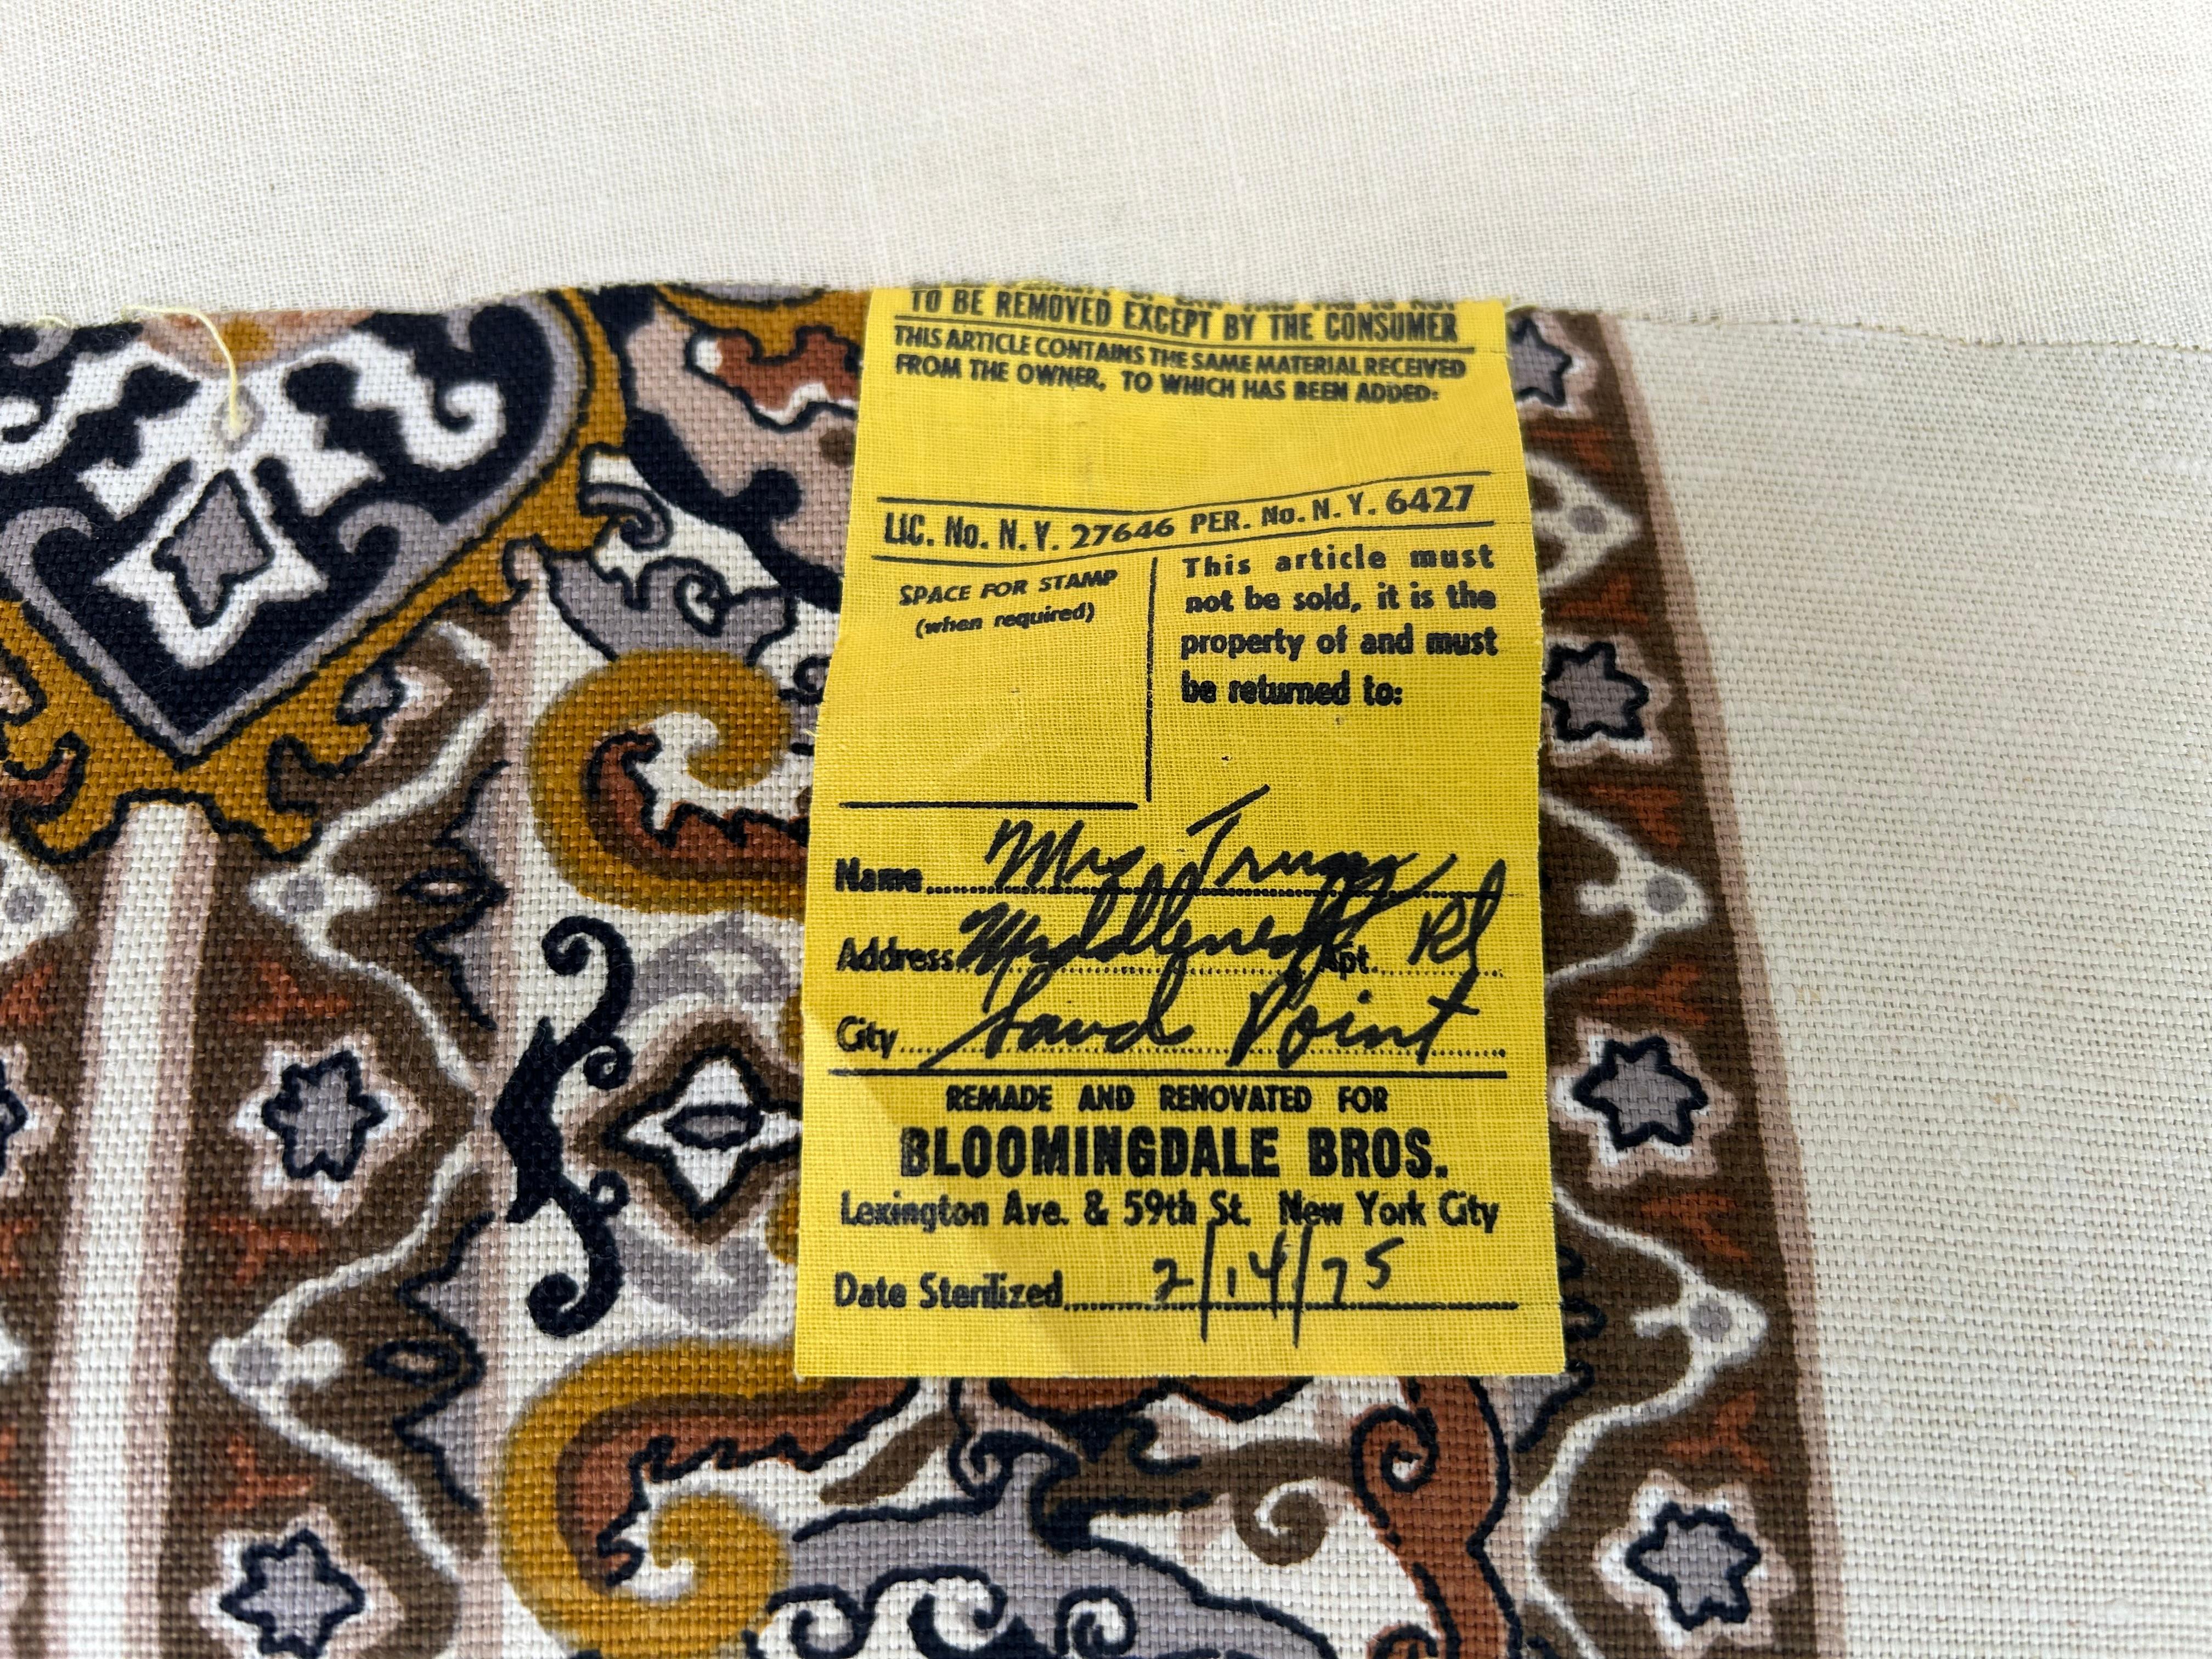 TO BE REMOVED EXCEPT BY THE CONSUMER
THIS ARTICLE CONTAINS THE SAME MATERIAL RECEIVED
FROM THE OWNER, TO WHICH HAS BEEN ADDED:
LIC. No. N. Y. 27646 PER. No. N. Y. 6427
SPACE FOR STAMP
(when required)
This article must
not be sold, it is the
property of and must
be returned to:
Name Mrs
Address Apt. Rd
City Sand Point
REMADE AND RENOVATED FOR
BLOOMINGDALE BROS.
Lexington Ave. & 59th St. New York City
Date Sterilized 2/14/75